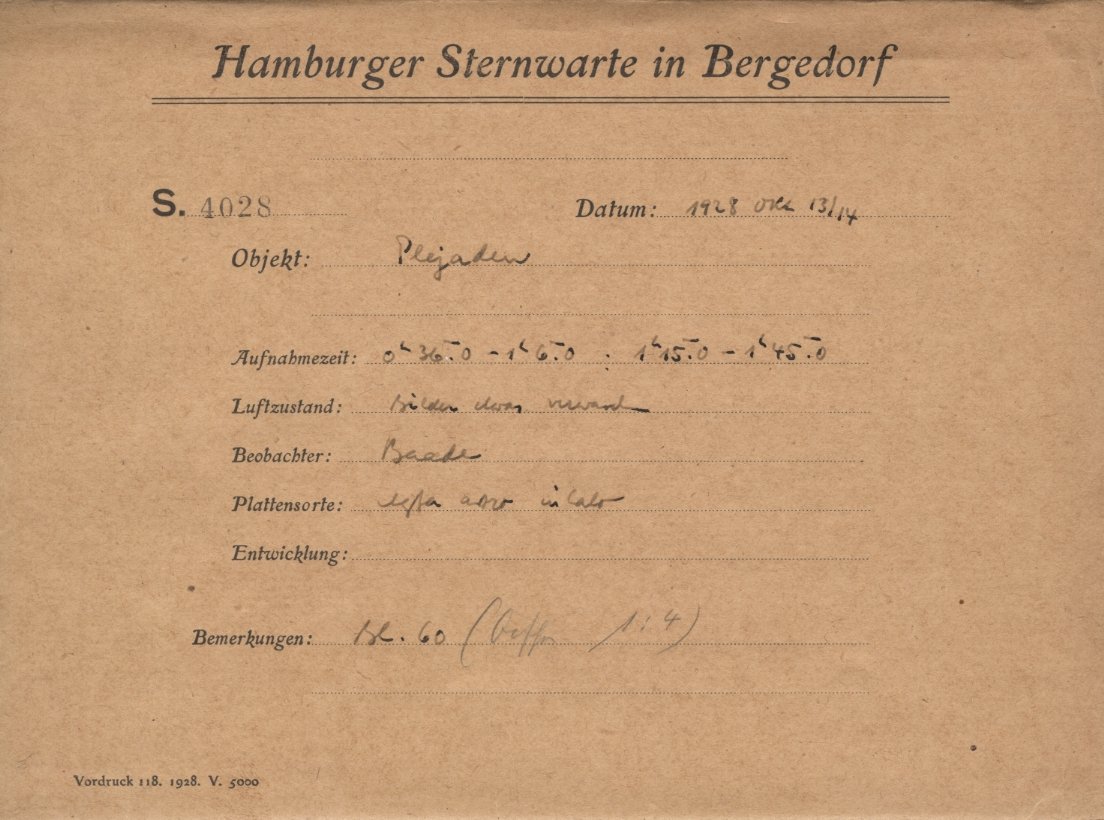 Hamburger Sternwarte in Bergedorf
S. 4028 Datum: 1928 Okt 13/14
Objekt: Plejaden
Aufnahmezeit: 0ʰ 36ᵐ.0 – 1ʰ 6ᵐ.0 . 1ʰ 15ᵐ.0 – 1ʰ 45ᵐ.0
Luftzustand: Bilder etwas verwaschen
Beobachter: Baade
Plattensorte: Agfa Astro
Entwicklung:
Bemerkungen: Bl. 60 (1:4)
Vordruck 118. 1928. V. 5000